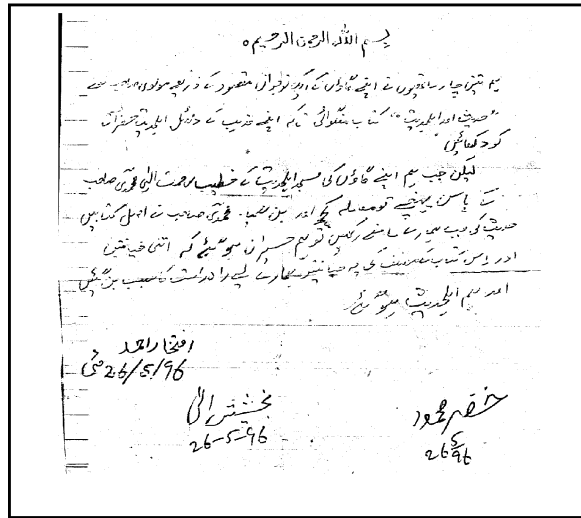 بسم اللہ الرحمن الرحیم ہ
ہم تین چار ساتھیوں نے اپنے گاؤں کے نوجوان مقصود کے ذریعہ مولوی صاحب سے
"حدیث اور اہلحدیث" کتاب منگوائی تاکہ اپنے مذہب کے دلائل اہلحدیث حضرات
کو دکھائیں
لیکن جب ہم اپنے گاؤں کی مسجد اہلحدیث کے خطیب رحمت الٰہی محمدی صاحب
کے پاس پہنچے تو معاملہ کچھ اور بن گیا۔ محمدی صاحب نے اصل کتابیں
حدیث کی جب ہمارے سامنے رکھیں تو ہم حیران ہو گئے کہ اتنی خیانتیں
اور اس کتاب کے مصنف کی یہ خیانتیں ہمارے لیے راہ راست کا سبب بن گئیں
اور ہم اہلحدیث ہو گئے
افتخار احمد
26/5/96 مئی
بخشیش الٰہی
26-5-96
خضر محمود
26 5 96